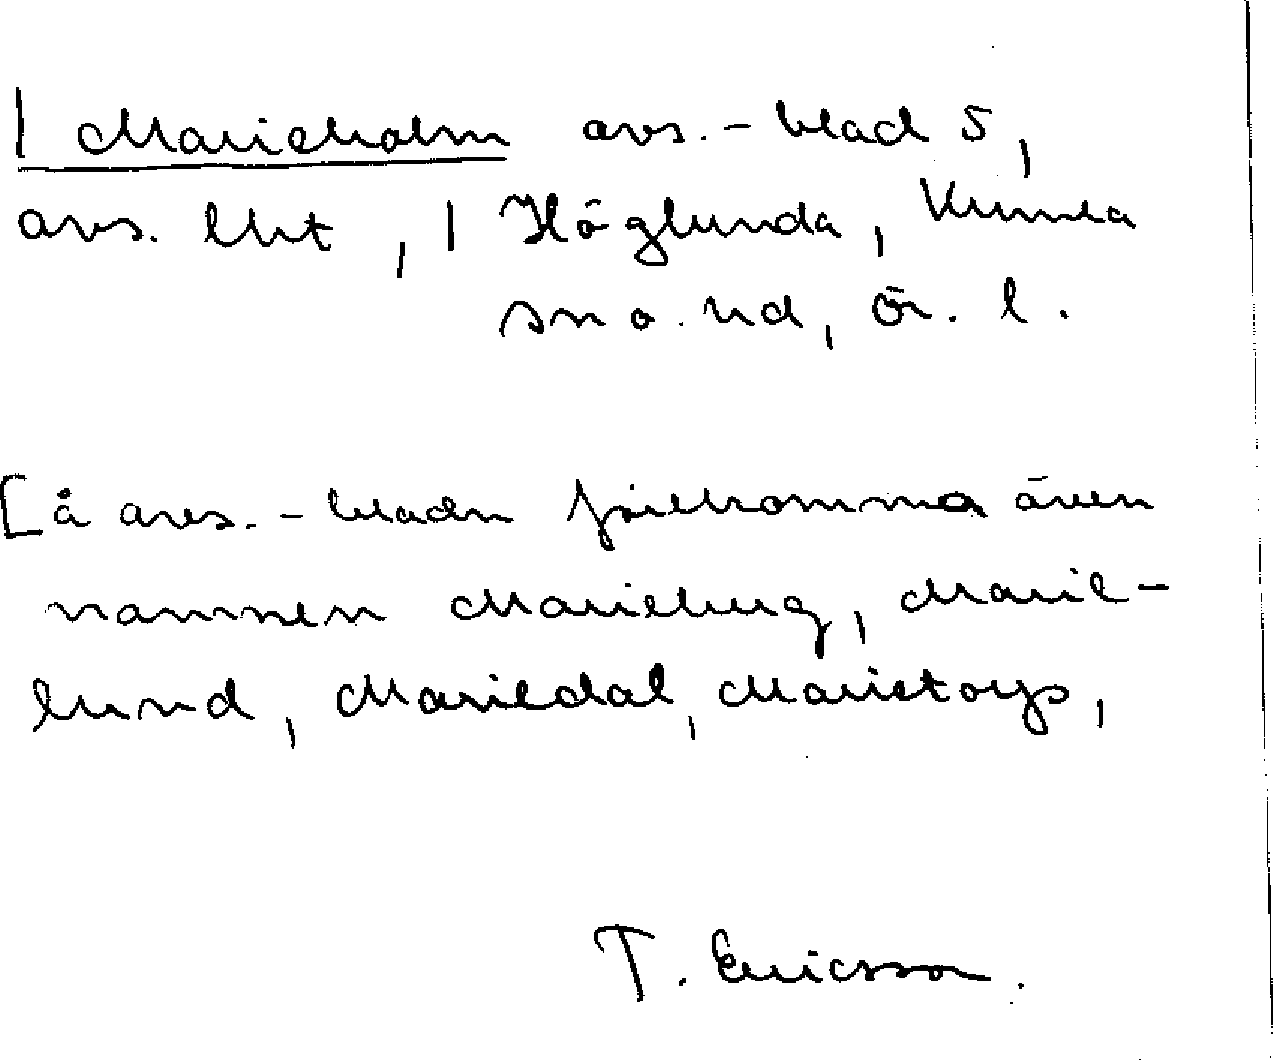 | Marieholm avs.-blad 5,
avs. lht, | Höglunda, Kumla
sn o. hd, Ör. l.
[å avs.-bladn förekomma även
namnen Marieburg, Marie-
lund, Mariedal, Marietorp,
T. Ericsson.